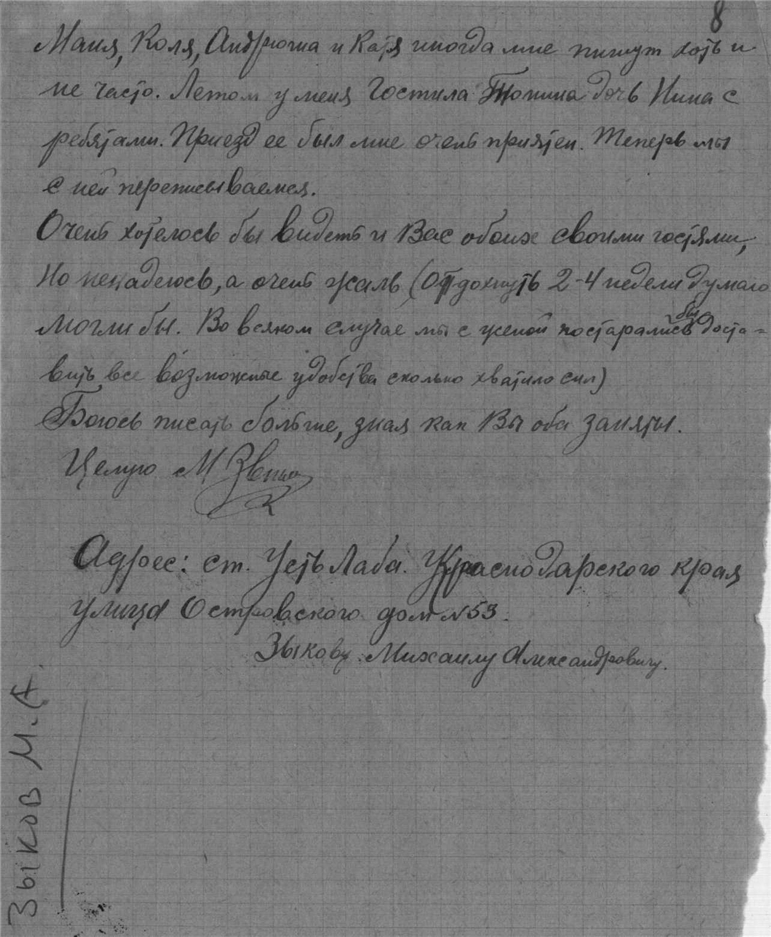 8
Маня, Коля, Андрюша и Катя иногда мне пишут хоть и
не часто. Летом у меня гостила Тонина дочь Нина с
ребятами. Приезд ее был мне очень приятен. Теперь мы
с ней переписываемся.
Очень хотелось бы видеть и Вас обоих своими гостями,
но ненадеюсь, а очень жаль (Отдохнуть 2-4 недели думаю
могли бы. Во всяком случае мы с женой постарались бы доста-
вить все возможные удобства сколько хватило сил)
Боюсь писать больше, зная как Вы оба заняты.
Целую М Зыков
Адрес: ст. Усть Лаба. Краснодарского края
улица Островского дом №53.
Зыкову Михаилу Александровичу.
Зыков М.А.